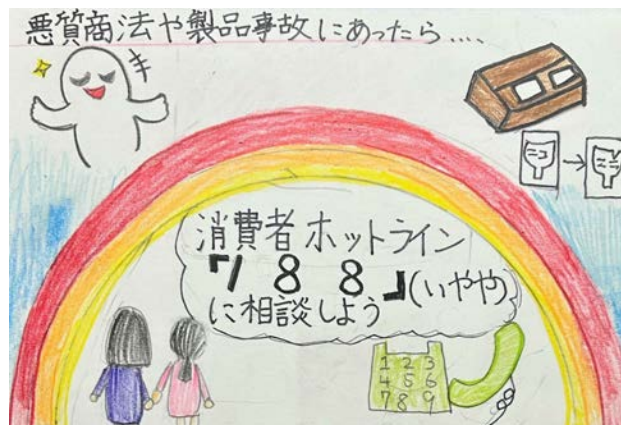 悪質商法や製品事故にあったら....
消費者ホットライン
「188」(いやや)
に相談しよう
1 2 3
4 5 6
7 8 9